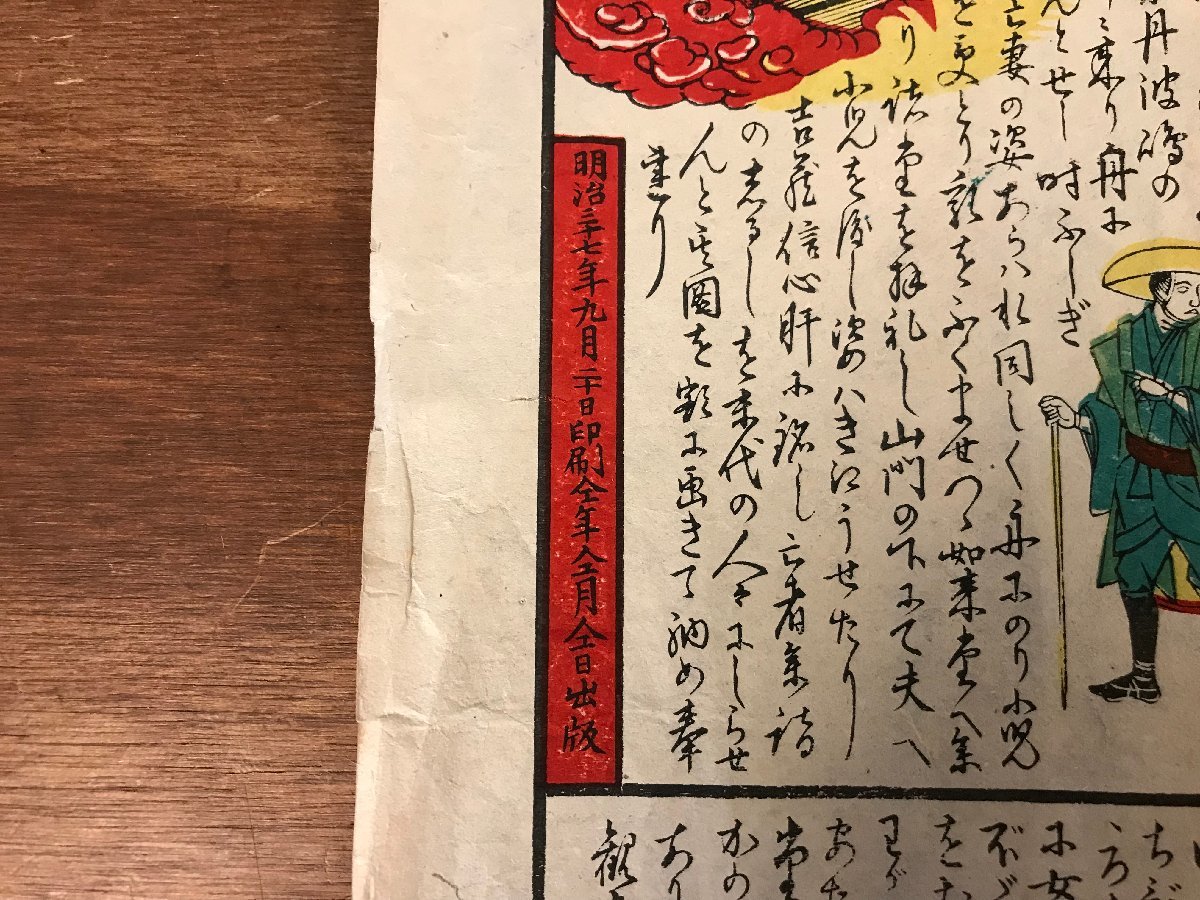 丹波嶋の
来り舟に
んとせし時ふしぎ
亡妻の姿あらハれ同しく舟にのり小児
を受とり乳をふくませつゝ如来堂へ参
り諸堂を拝礼し山門の下にて夫へ
小児を渡し姿ハきえうせたり
吉蔵信心肝に銘し亡者参詣
のしるしを末代の人々にしらせ
んと其図を額に画きて納め奉
明治三十七年九月二十日印刷仝年仝月仝日出版
に女
かの
あり
観